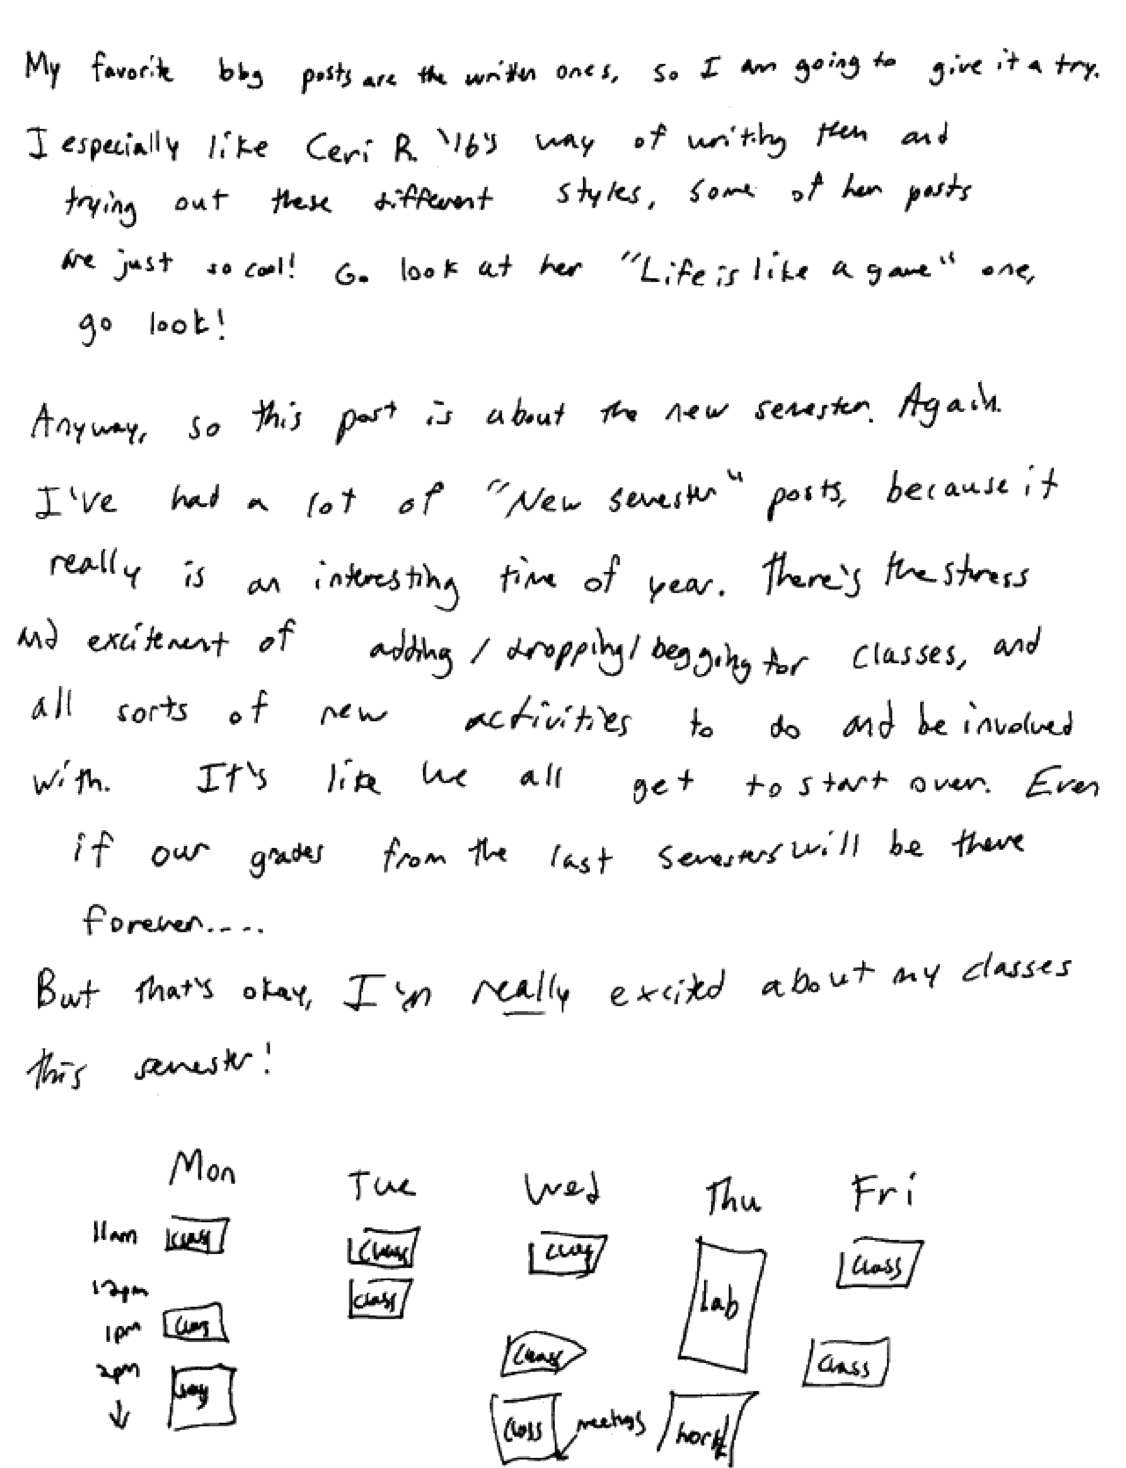 My favorite blog posts are the written ones, so I am going to give it a try.
I especially like Ceri R. '16's way of writing them and
trying out these different styles, some of her posts
are just so cool! Go look at her "Life is like a game" one,
go look!
Anyway, so this post is about the new semester. Again.
I've had a lot of "New semester" posts, because it
really is an interesting time of year. There's the stress
and excitement of adding/dropping/begging for classes, and
all sorts of new activities to do and be involved
with. It's like we all get to start over. Even
if our grades from the last semesters will be there
forever....
But that's okay, I'm really excited about my classes
this semester!
Mon Tue Wed Thu Fri
11am class class class lab class
12pm class
1pm class class class
2pm class meetings work